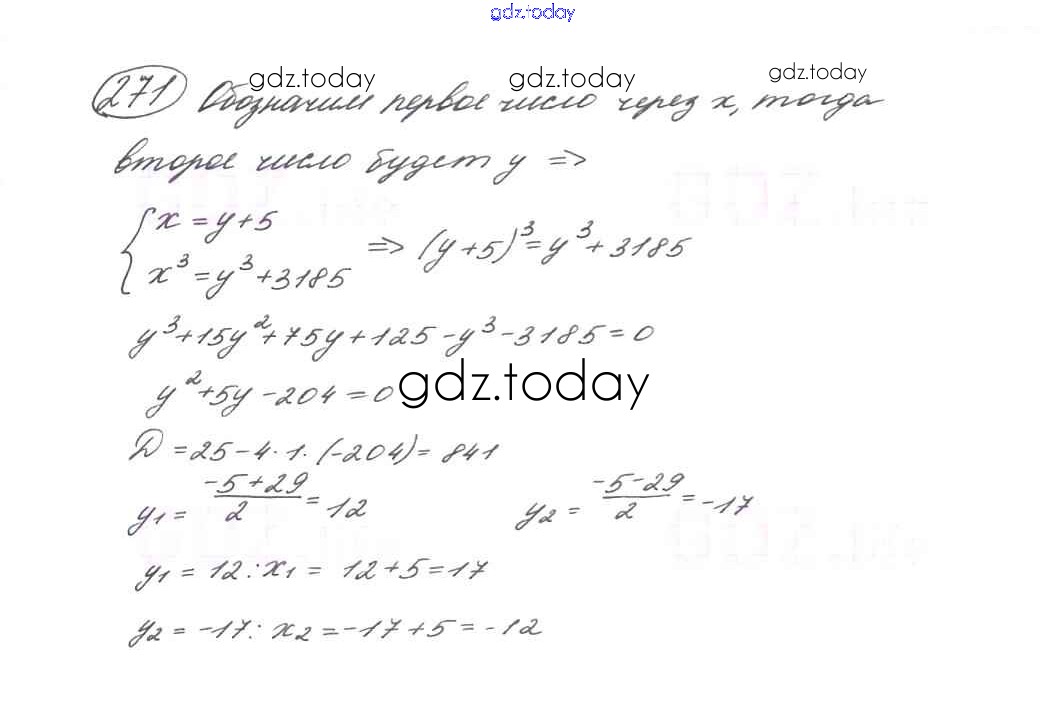 gdz.today
gdz.today gdz.today gdz.today
271 Обозначим первое число через x, тогда
второе число будет y =>
{ x = y + 5
x³ = y³ + 3185 => (y + 5)³ = y³ + 3185
y³ + 15y² + 75y + 125 - y³ - 3185 = 0
y² + 5y - 204 = 0
gdz.today
D = 25 - 4 · 1 · (-204) = 841
y₁ = (-5 + 29)/2 = 12 y₂ = (-5 - 29)/2 = -17
y₁ = 12: x₁ = 12 + 5 = 17
y₂ = -17: x₂ = -17 + 5 = -12